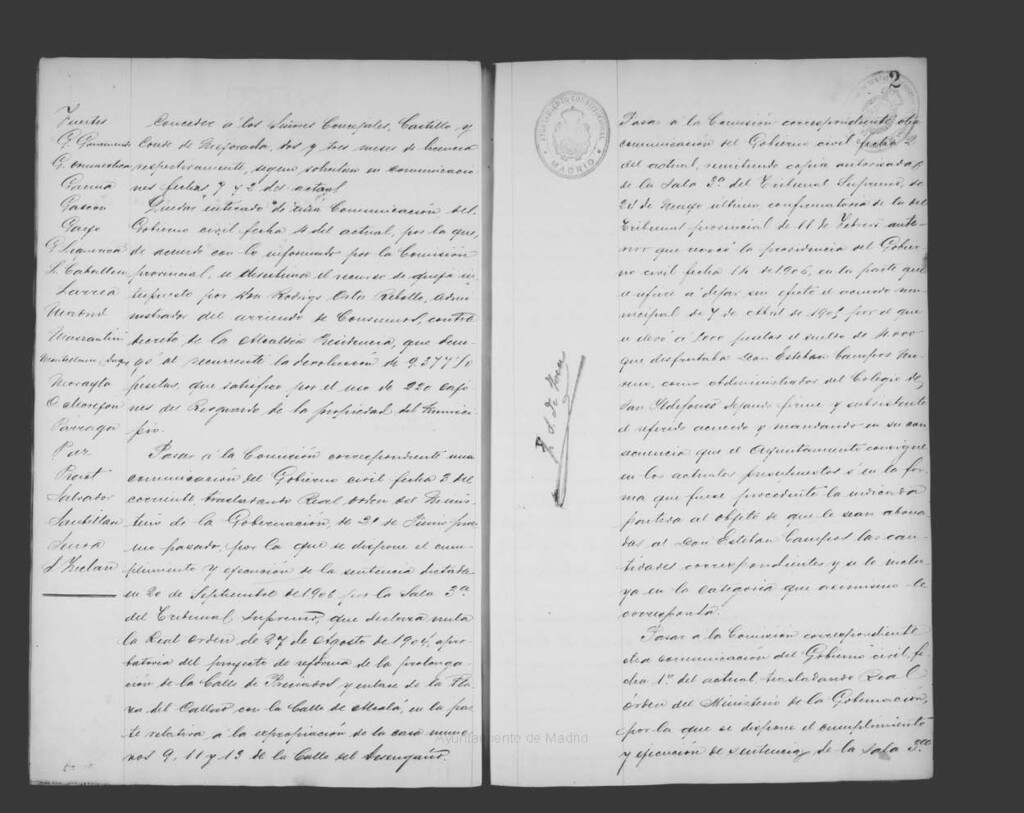 Fuertes
G.
G.
Gauna
Gascon
Gayo
L. Caballero
Larrea
Madrid
Morayta
Párraga
Paz
Prast
Salvador
Santillan
Serra
Conceder á los Señores Concejales, Castillo y
Conde de Mejorada, dos y tres meses de licencia
respectivamente, segun solicitan en comunicacio
nes fechas 7 y 2 del actual
Quedar enterado de una Comunicación del
Gobierno civil fecha 4 del actual, por la que,
de acuerdo con lo informado por la Comisión
provincial, se desestima el recurso de queja in
terpuesto por Don Rodrigo Rebollo, admi
nistrador del arriendo de Consumos, contra
decreto de la Alcaldía Presidencia, que dene
gó al recurrente la devolución de
pesetas, que satisfizo por el uso de 220 cajo
nes del Resguardo de la propiedad del Munici
pio.
Pasar á la Comisión correspondiente una
comunicación del Gobierno civil fecha 2 del
corriente trasladando Real orden del Minis
terio de la Gobernación, de de Junio pró
ximo pasado, por la que se dispone el cum
plimiento y ejecución de la sentencia dictada
en 20 de Septiembre de 1906 por la Sala 3ª
del Tribunal Supremo, que declara nula
la Real orden de 27 de Agosto de 1904, apro
batoria del proyecto de reforma de la prolonga
ción de la Calle de Preciados, y enlace de la Pla
za del Callao con la Calle de Alcalá, en la par
te relativa á la expropiación de la casa nume
ros 9, 11 y 13 de la Calle del Desengaño.
AYUNTAMIENTO CONSTITUCIONAL
MADRID
2
Pasar á la Comisión correspondiente otra
comunicación del Gobierno civil fecha 2
del actual, remitiendo copia autorizada
de la Sala 3ª del Tribunal Supremo, de
de Mayo último, confirmatoria de la del
Tribunal provincial de 11 de Febrero ante
rior que revocó la presidencia del Gobier
no civil fecha 14 de 1906, en la parte que
se refiere á dejar sin efecto el acuerdo mu
nicipal de 7 de Abril de por el que
se elevó á pesetas el sueldo de
que disfrutaba Don Esteban Campos
como Administrador del Colegio de
San Ildefonso dejando firme y subsistente
el referido acuerdo y mandando en su con
secuencia que el Ayuntamiento consigne
en los actuales presupuestos ó en la for
ma que fuere procedente la indicada
partida al objeto de que le sean abona
das al Don Esteban Campos las can
tidades correspondientes y se le
ya en la categoria que asimismo le
corresponda.
Pasar á la Comisión correspondiente
otra comunicación del Gobierno civil, fe
cha 1º del actual, trasladando Real
órden del Ministerio de la Gobernación,
por la que se dispone el cumplimiento
y ejecución de sentencia de la Sala 3ª
Ayuntamiento de Madrid